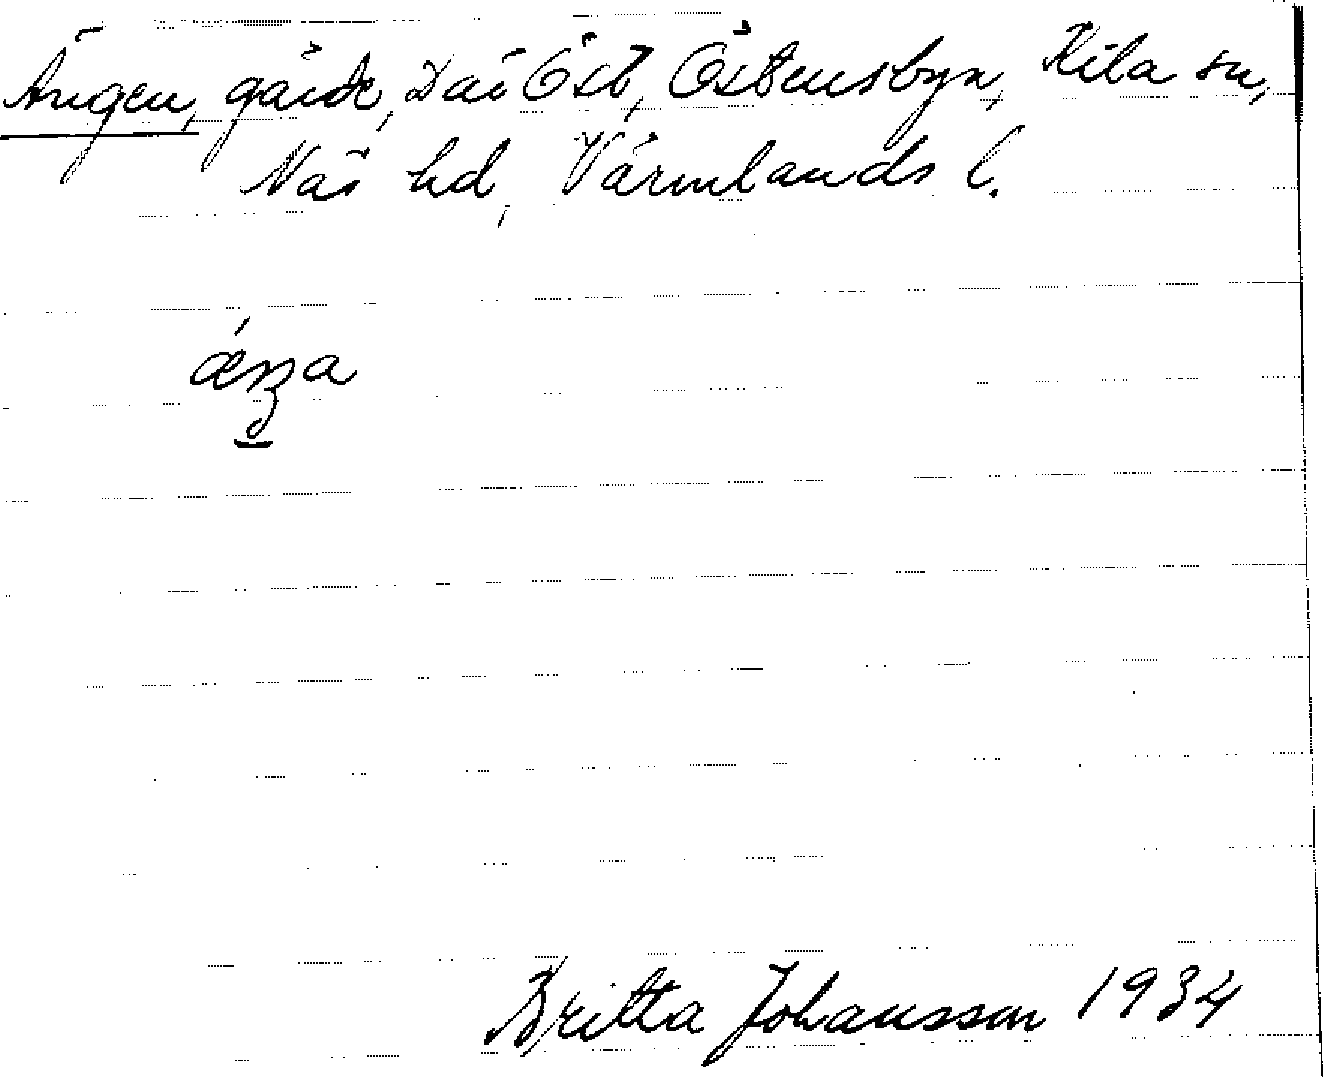 Ängen, gärde, Där Öst, Östensbyn, Kila sn,
Näs hd, Värmlands l.
Britta Johansson 1934